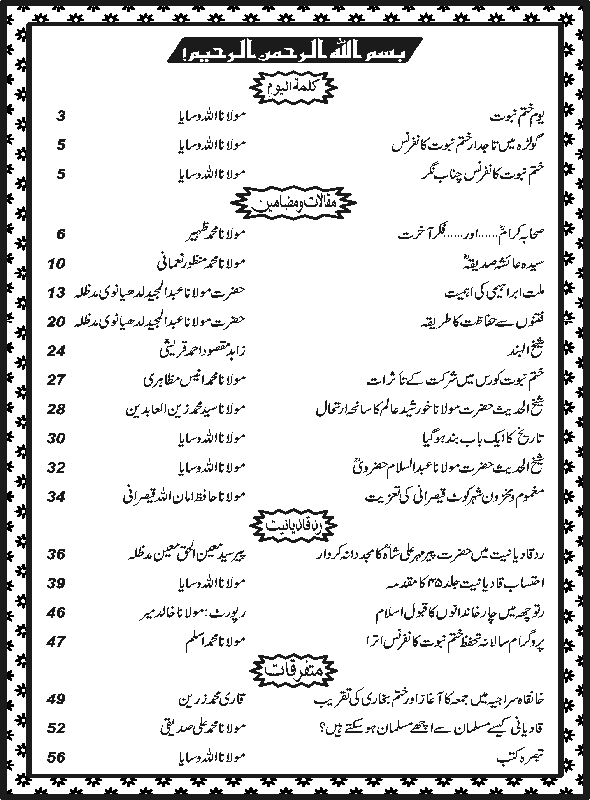 بسم اللہ الرحمن الرحیم!
کلمۃ الیوم
یوم ختم نبوت مولانا اللہ وسایا 3
گولڑہ میں تاجدار ختم نبوت کانفرنس مولانا اللہ وسایا 5
ختم نبوت کانفرنس چناب نگر مولانا اللہ وسایا 5
مقالات و مضامین
صحابہ کرامؓ......اور......فکر آخرت مولانا محمد ظہیر 6
سیدہ عائشہ صدیقہؓ مولانا محمد منظور نعمانی 10
ملت ابراہیمی کی اہمیت حضرت مولانا عبدالمجید لدھیانوی مدظلہ 13
فتنوں سے حفاظت کا طریقہ حضرت مولانا عبدالمجید لدھیانوی مدظلہ 20
شیخ الہند زاہد مقصود احمد قریشی 24
ختم نبوت کورس میں شرکت کے تاثرات مولانا محمد انیس مظاہری 27
شیخ الحدیث حضرت مولانا خورشید عالم کا سانحہ ارتحال مولانا سید محمد زین العابدین 28
تاریخ کا ایک باب بند ہوگیا مولانا اللہ وسایا 30
شیخ الحدیث حضرت مولانا عبدالسلام حضرویؒ مولانا اللہ وسایا 32
مغموم و محزون شہر کوٹ قیصرانی کی تعزیت مولانا حافظ امان اللہ قیصرانی 34
رد قادیانیت
رد قادیانیت میں حضرت پیر مہر علی شاہؒ کا مجددانہ کردار پیر سید معین الحق معین مدظلہ 36
احتساب قادیانیت جلد ۴۵ کا مقدمہ مولانا اللہ وسایا 39
رتوچھہ میں چار خاندانوں کا قبول اسلام رپورٹ: مولانا خالد میر 46
پروگرام سالانہ تحفظ ختم نبوت کانفرنس اترا مولانا محمد اسلم 47
متفرقات
خانقاہ سراجیہ میں جمعہ کا آغاز اور ختم بخاری کی تقریب قاری محمد زرین 49
قادیانی کیسے مسلمان سے اچھے مسلمان ہوسکتے ہیں؟ مولانا محمد علی صدیقی 52
تبصرہ کتب مولانا اللہ وسایا 56